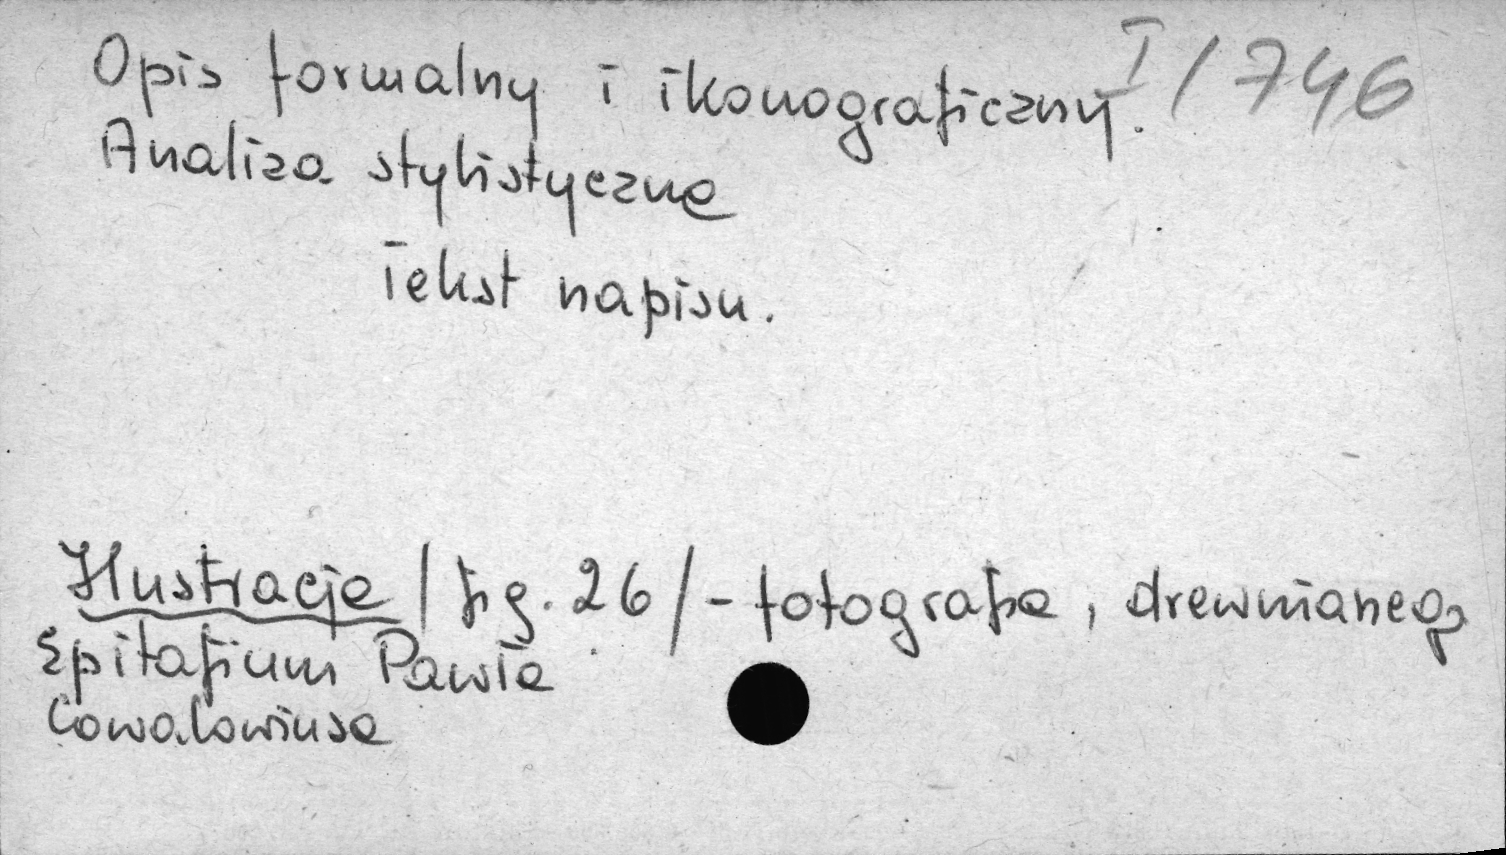 I/746
Opis formalny i ikonograficzny.
Analiza stylistyczna
Tekst napisu.
Ilustracje /fig. 26/ - fotografia, drewnianego
Epitafium Pawła
Cowalowiusa